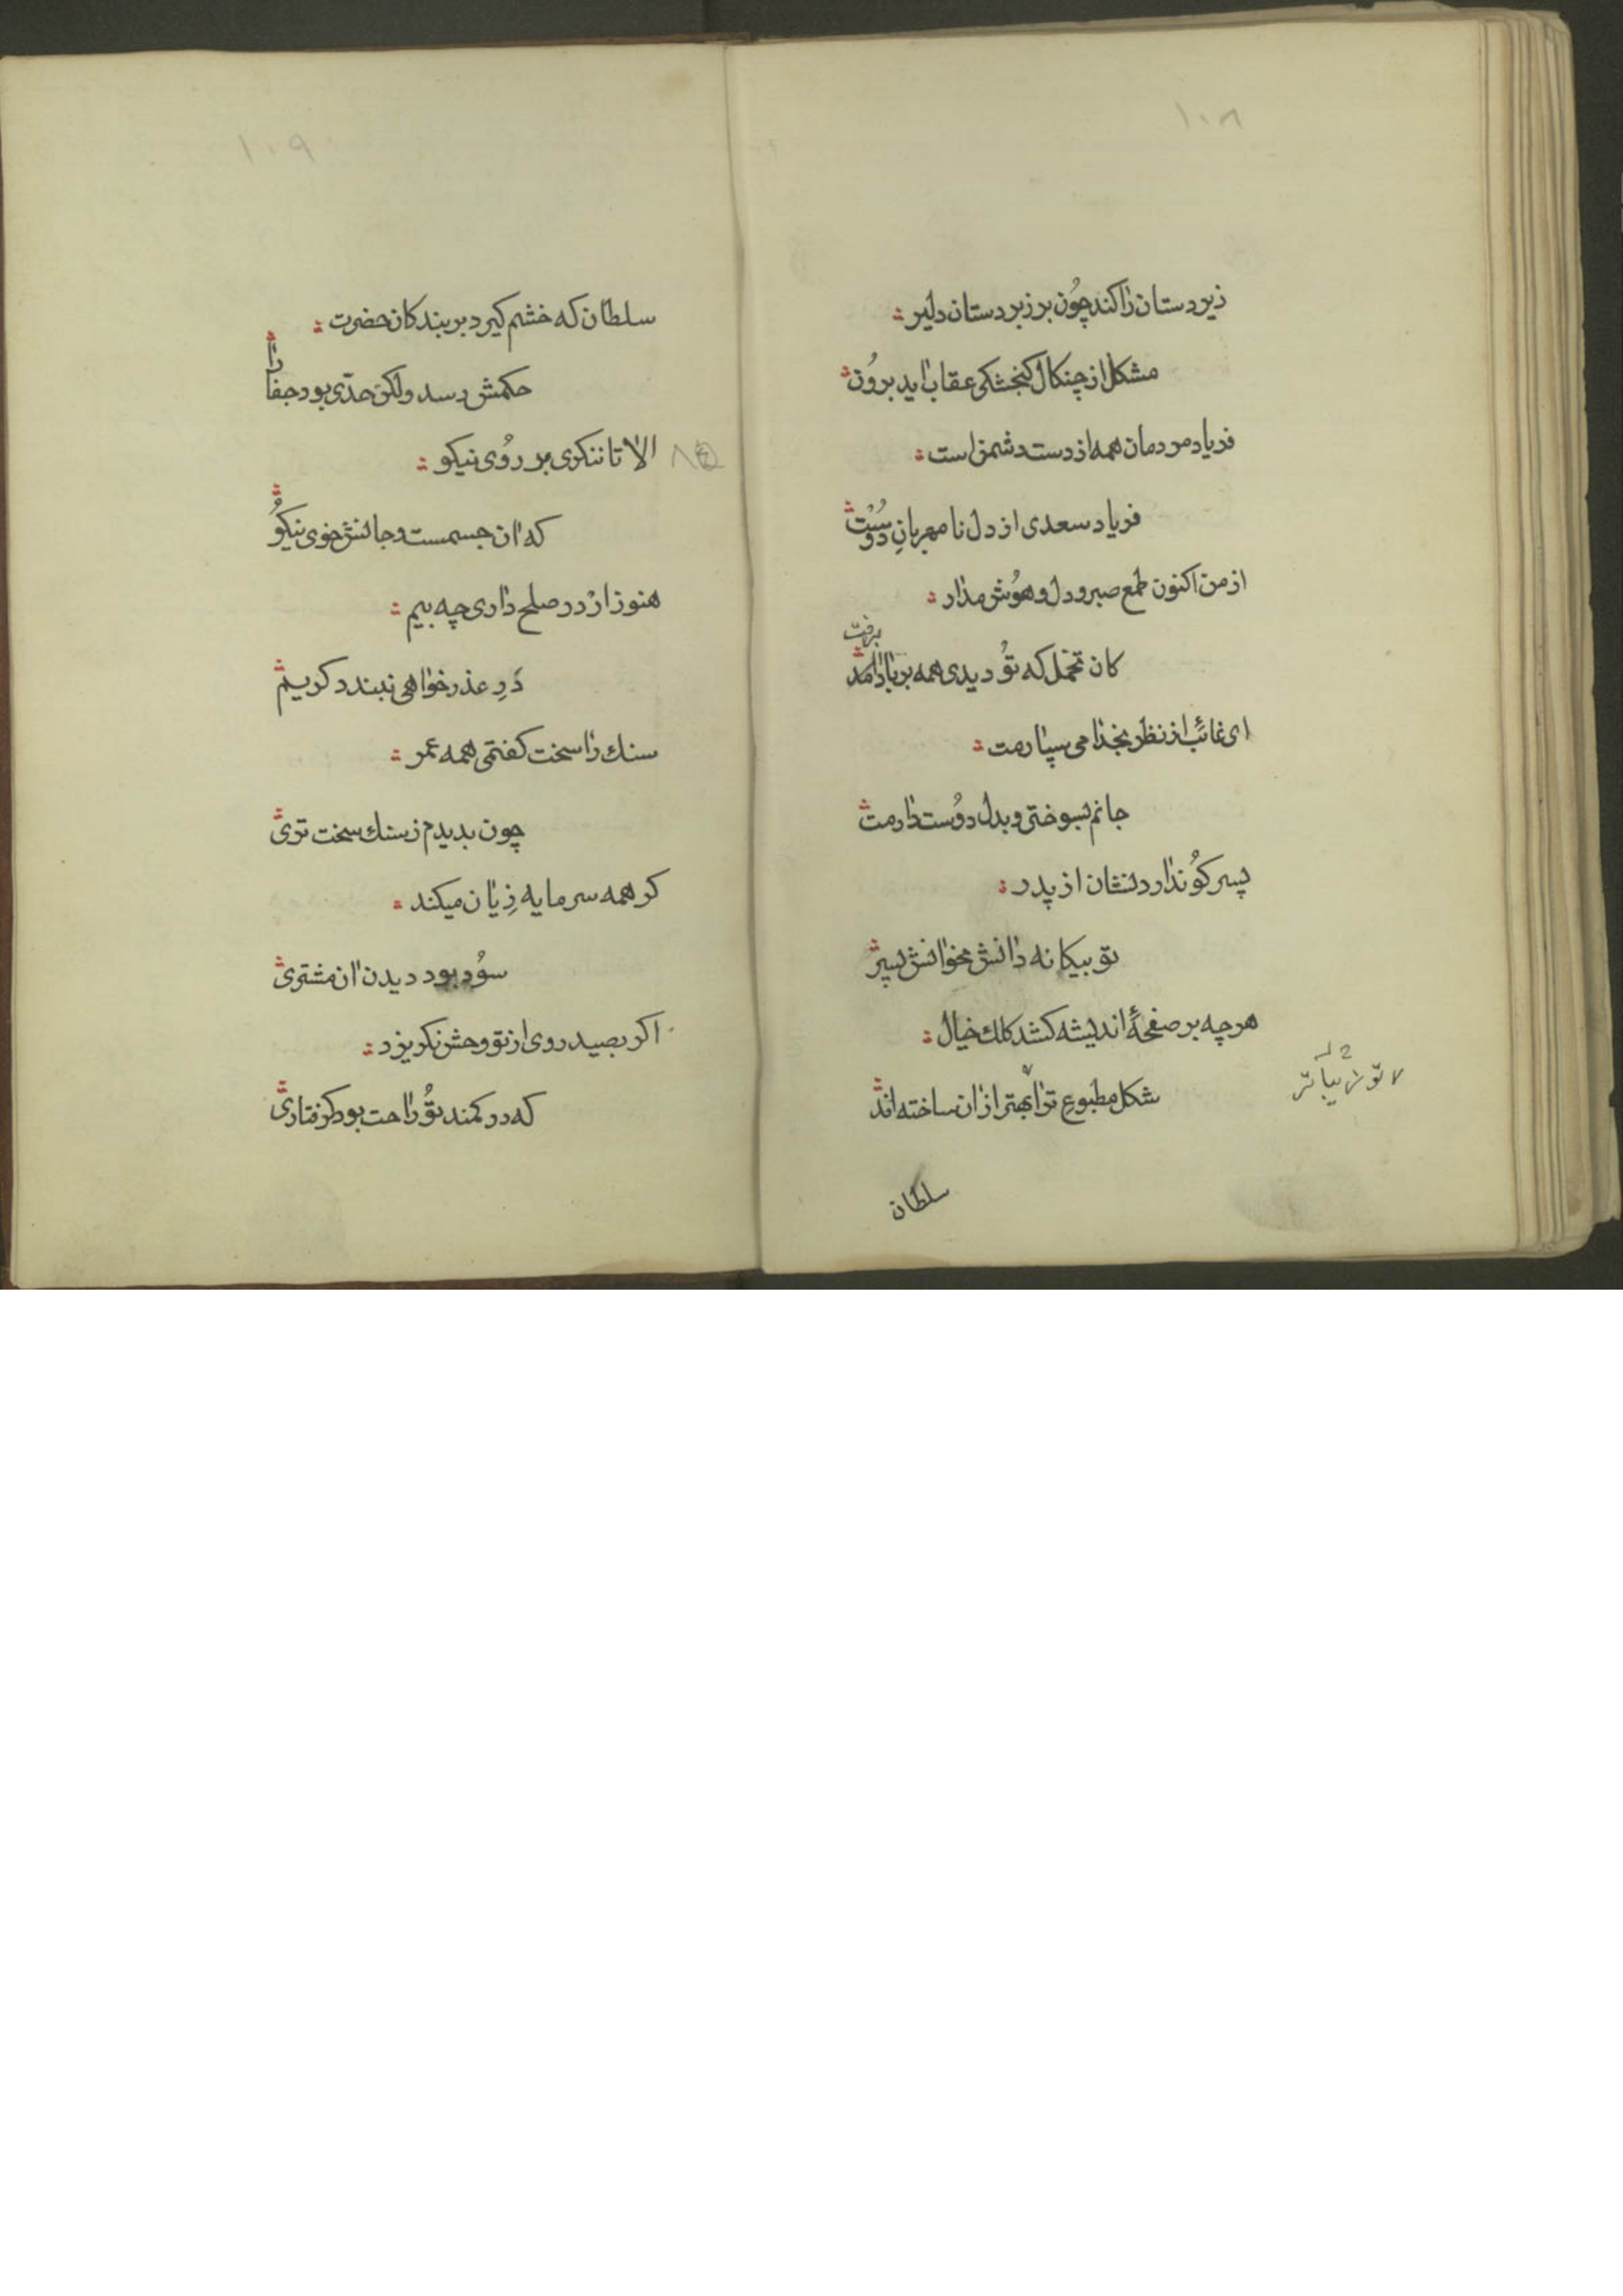 ١٠٨
زیردستان را کند چون بر زبردستان دلیر
مشکل از چنکال کنجشکی عقاب اید برون
فریاد مردمان همه از دست دشمن است
فریاد سعدی از دل نامهربانِ دوست
از من اکنون طمع صبر و دل و هوش مدار
برفت
کان تحمل که تو دیدی همه بر باد امد
ای غائب از نظر بخدا می سپارمت
جانم بسوختی و بدل دوست دارمت
پسر کو ندارد نشان از پدر
تو بیکانه دانش مخوانش پسر
هرچه بر صفحهٔ اندیشه کشد کلك خیال
شکل مطبوعِ ترا بهتر ازان ساخته اند
تو زیباتر
سلطان
١٠٩
سلطان که خشم کیرد بر بندکان حضرت
حکمش رسد ولکن حدّی بود جفا را
الا تا ننکری بر روی نیکو
که ان جسمست و جانش خوی نیکو
هنوز ار در صلح داری چه بیم
دَرِ عذرخواهی نبندد کریم
سنك را سخت کفتمی همه عمر
چون بدیدم ز سنك سخت تری
کر همه سرمایه زِیان میکند
سود بود دیدن ان مشتری
اکر بصید روی از تو وحش نکریزد
که در کمند تو راحت بود کرفتاری